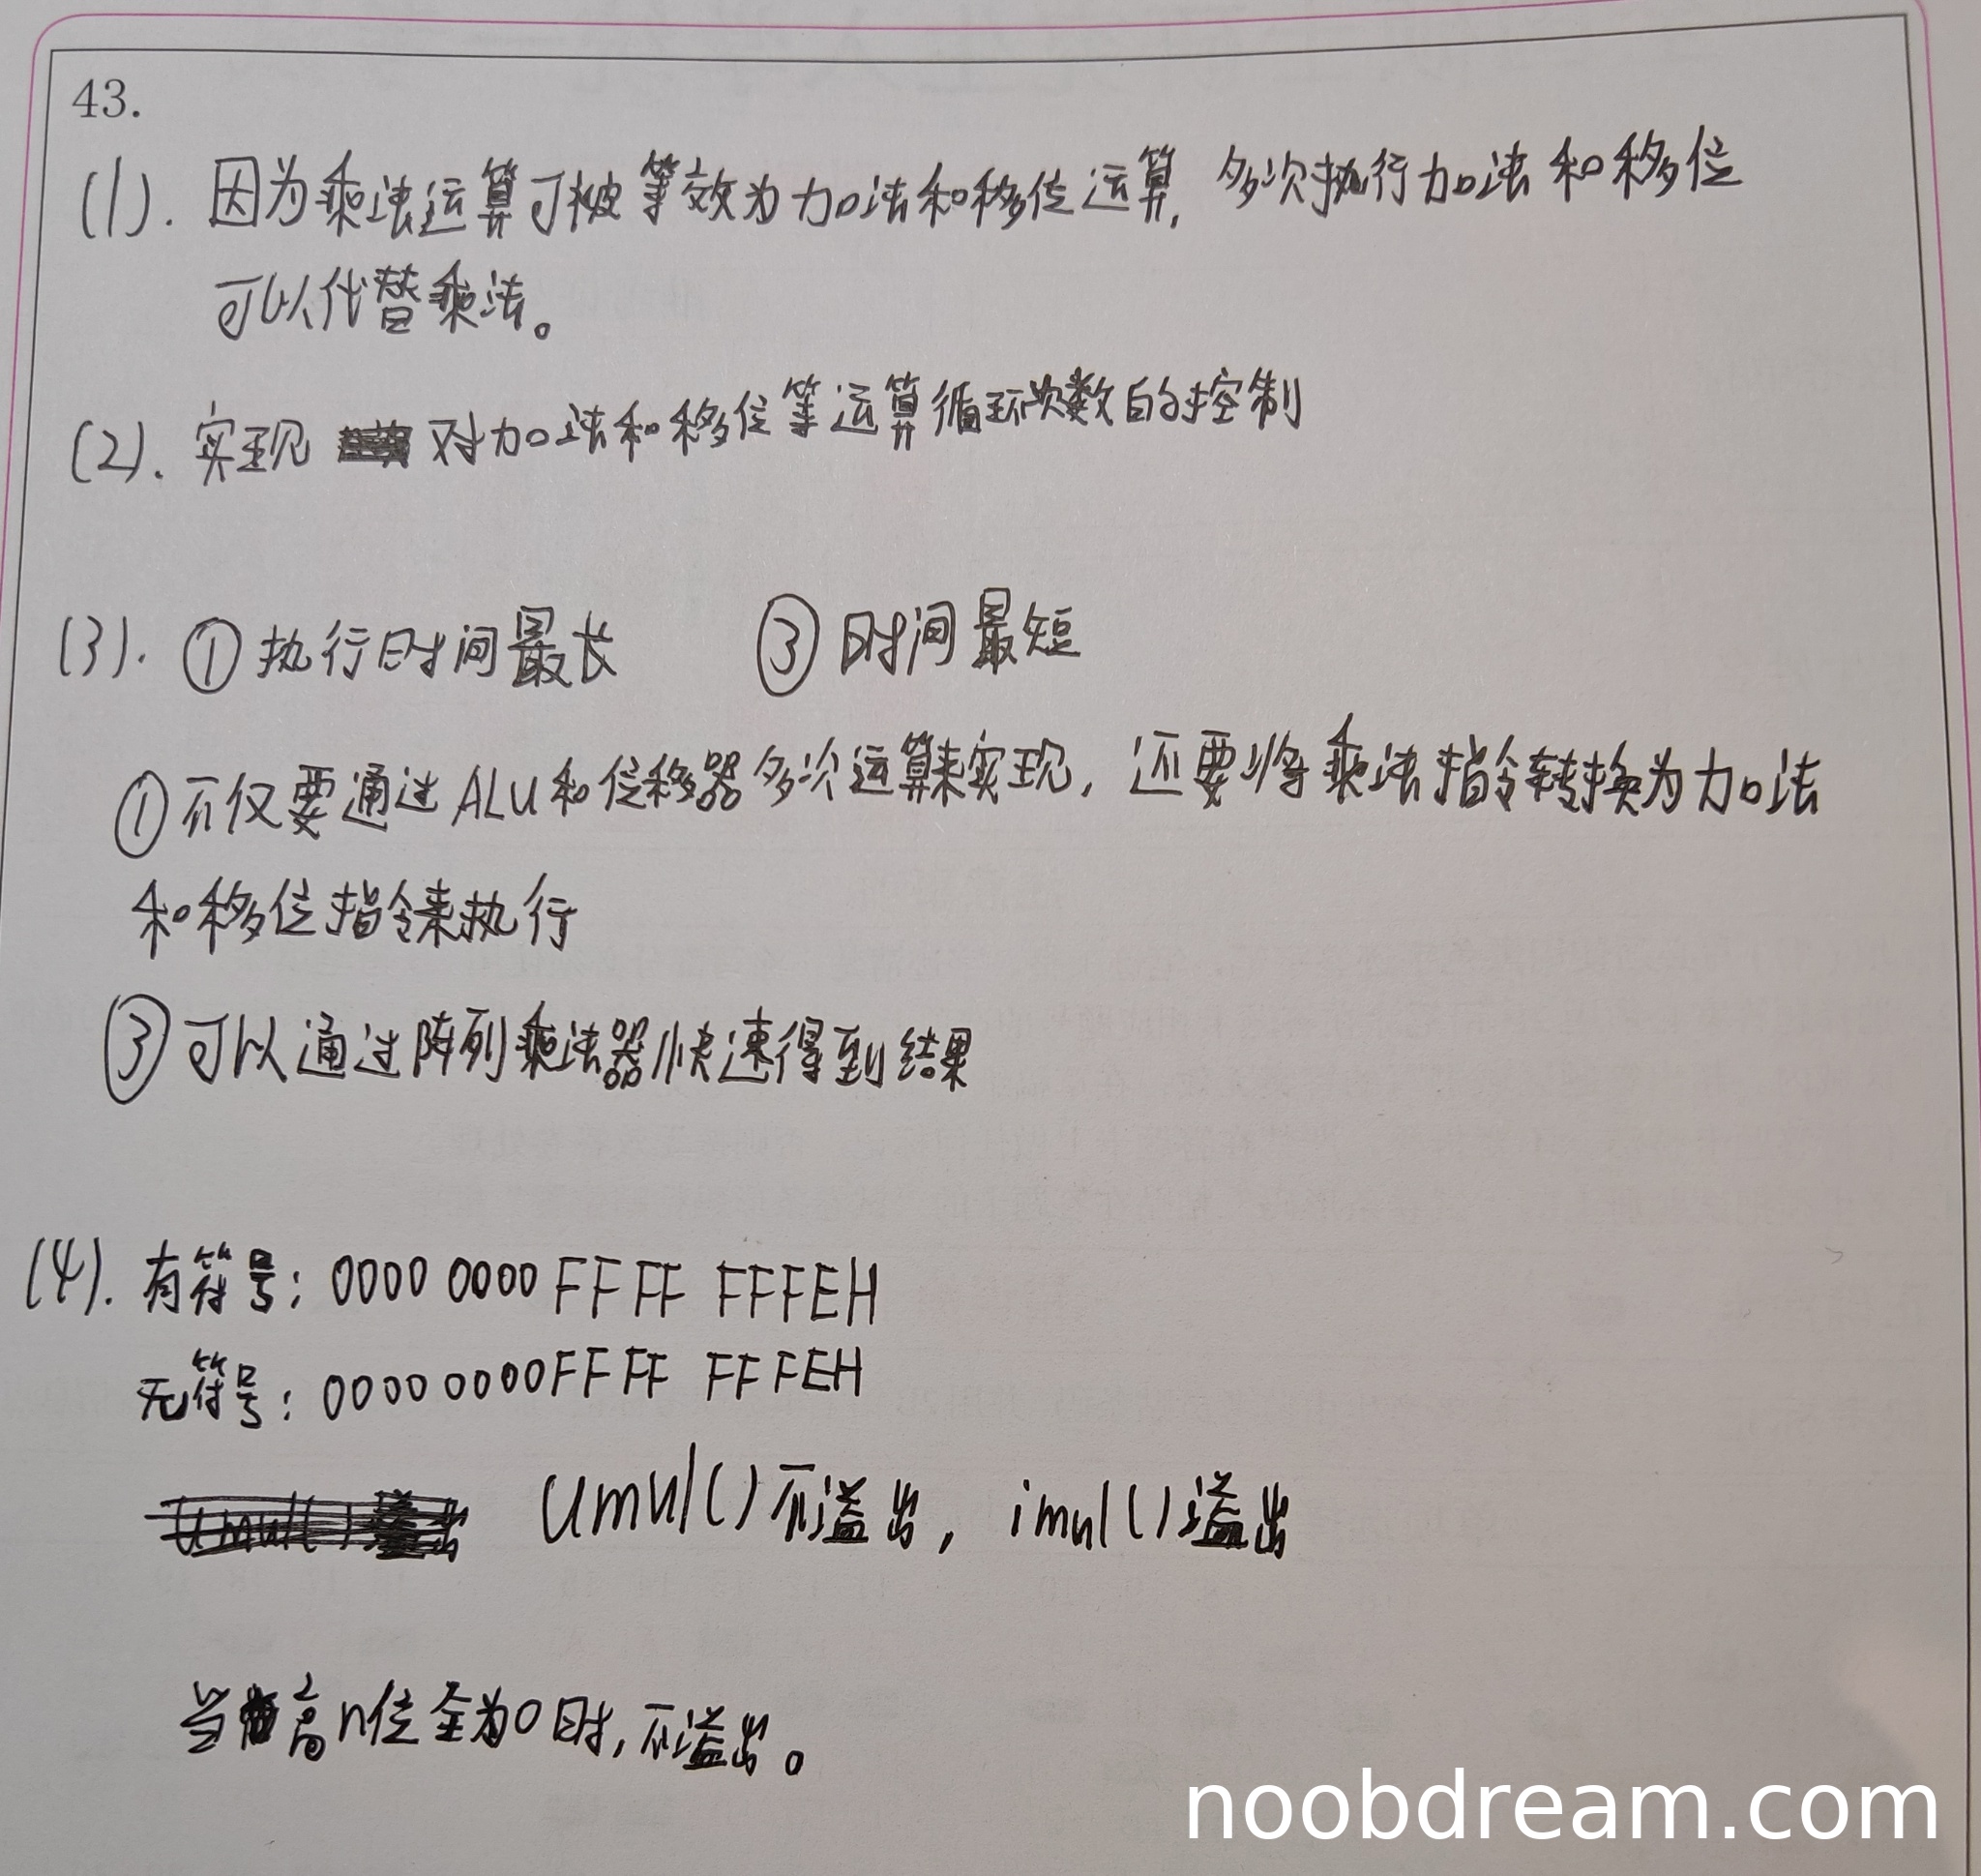 43.
(1). 因为乘法运算可被等效为加法和移位运算, 多次执行加法和移位
可以代替乘法。
(2). 实现 对加法和移位等运算循环次数的控制
(3). ①执行时间最长 ③时间最短
①不仅要通过ALU和位移器多次运算来实现, 还要将乘法指令转换为加法
和移位指令来执行
③可以通过阵列乘法器快速得到结果
(4). 有符号: 0000 0000 FFFF FFFEH
无符号: 0000 0000 FFFF FFFEH
umul() 不溢出, imul() 溢出
当高n位全为0时, 不溢出。
noobdream.com